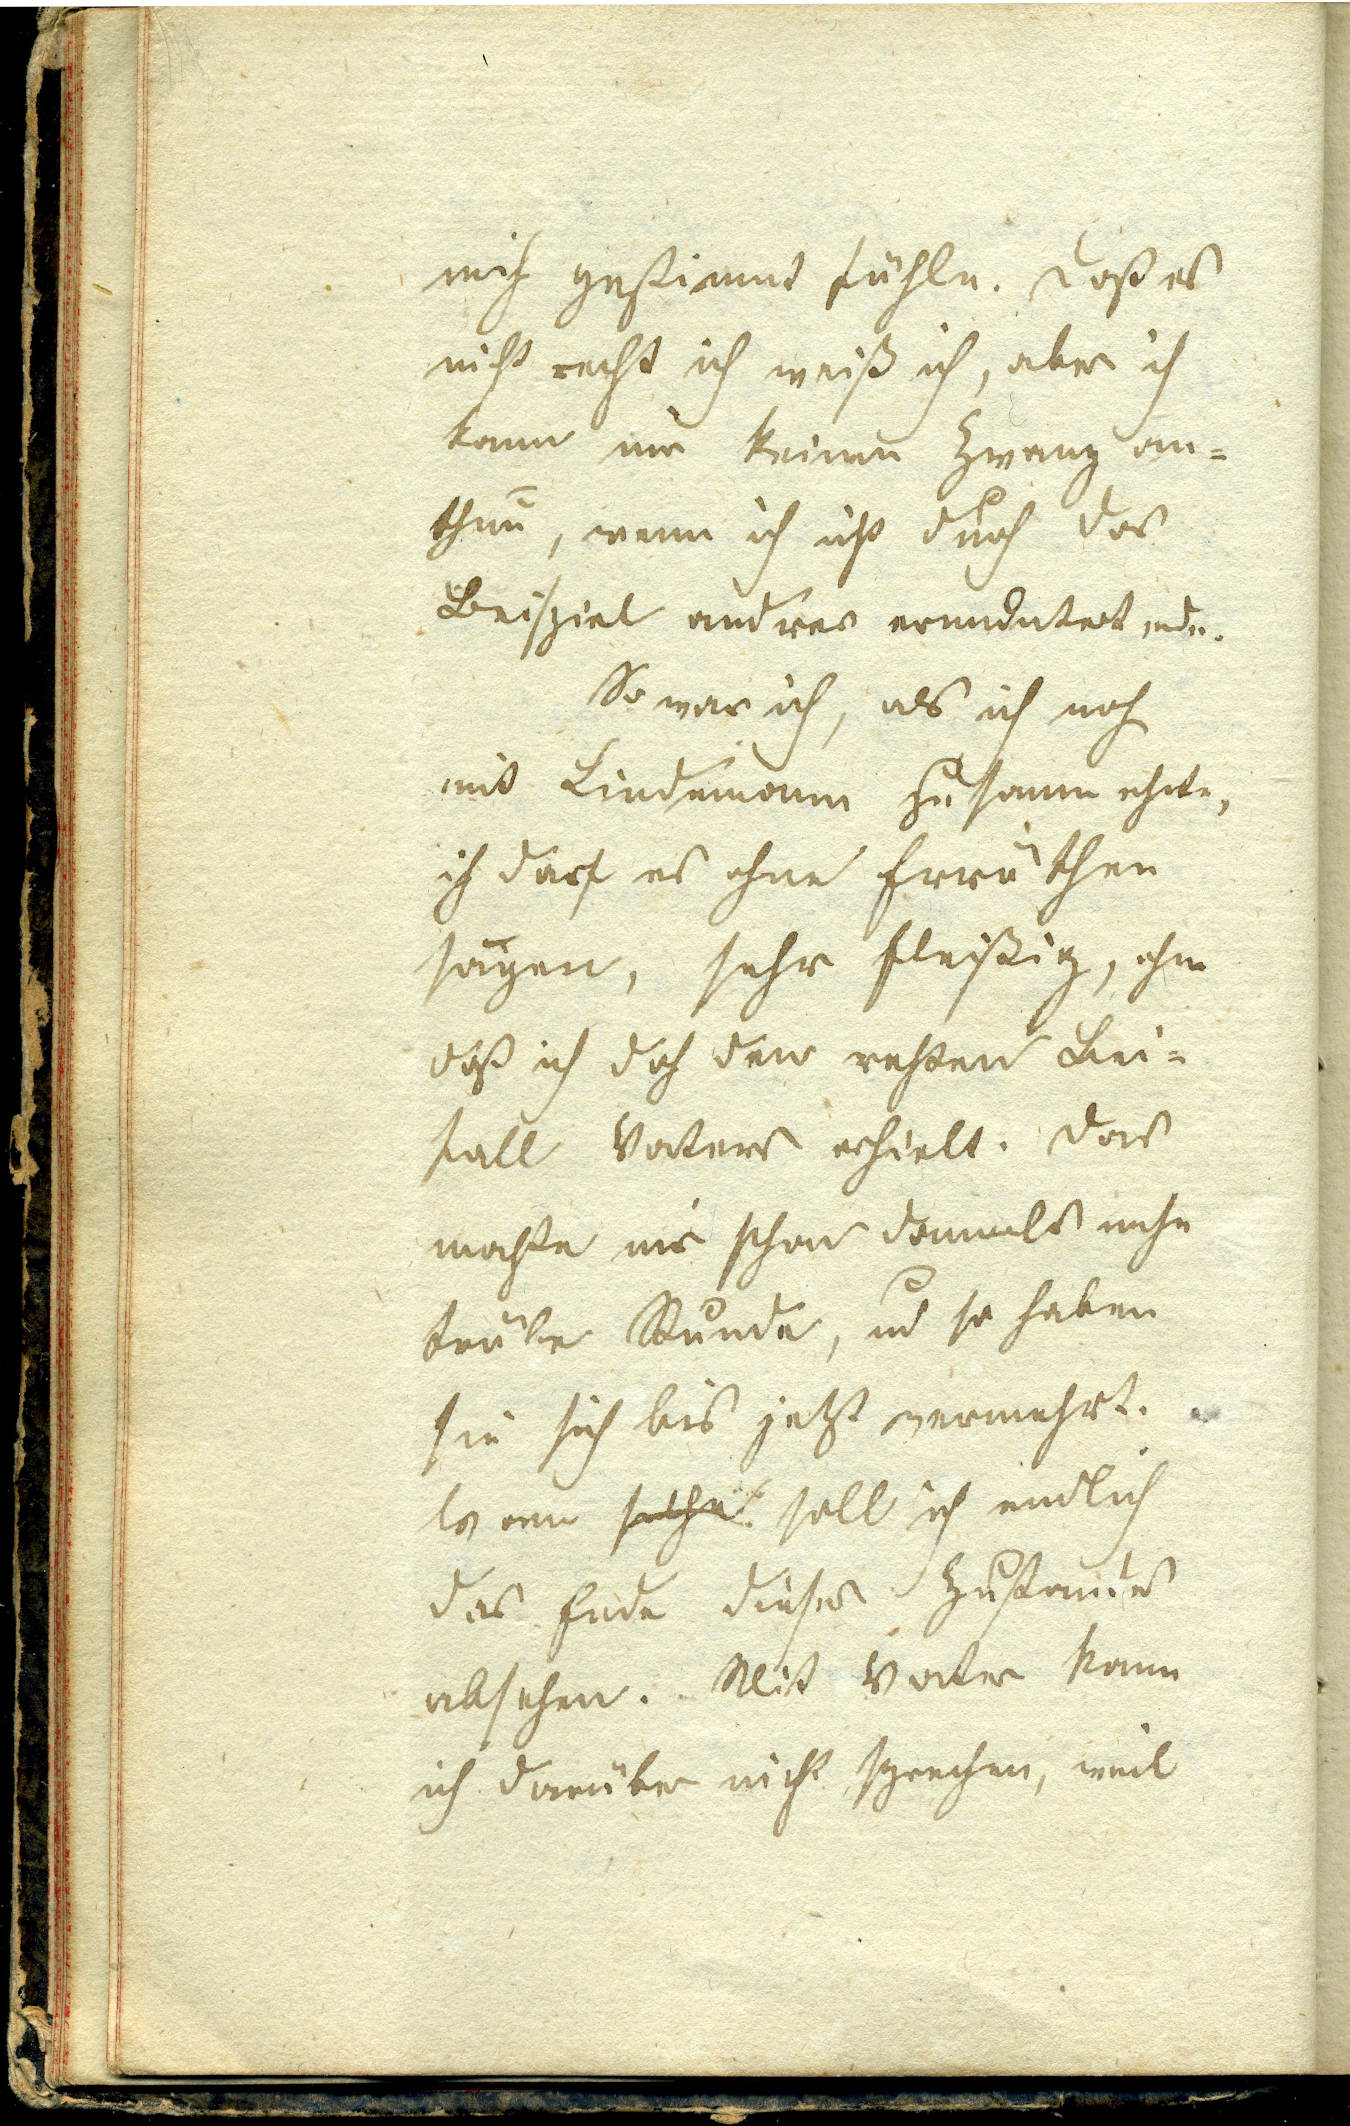 mich gestimmt fühle. Daß es
nicht recht ich weiß ich, aber ich
kann mir keinen Zwang an-
thun, wenn ich nicht durch das
Beispiel andrer ermuntert
So war ich, als ich noch
mit Lindemann zusamm
ich darf es ohne Erröthen
sagen, sehr fleißig, ohne
daß ich doch den rechten Bei-
fall Vaters erhielt. Das
machte mir schon damals mehre
trübe Stunde, und so haben
sie sich bis jetzt vermehrt.
Wann soll ich endlich
das Ende dieses Zustandes
absehen. Mit Vater kann
ich darüber nicht sprechen, weil